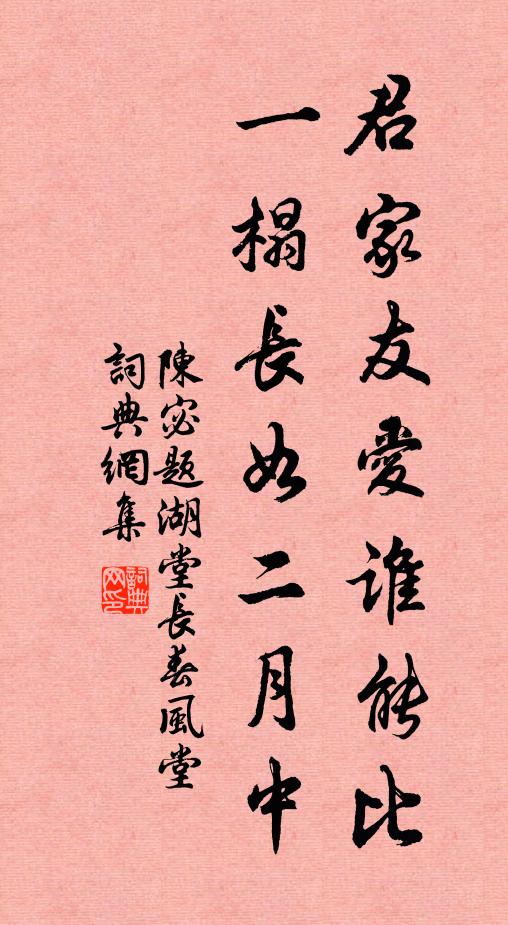 君家友愛誰能比
一榻長如二月中
陳宓題湖堂長春風堂
詞典網集
詞典
网印